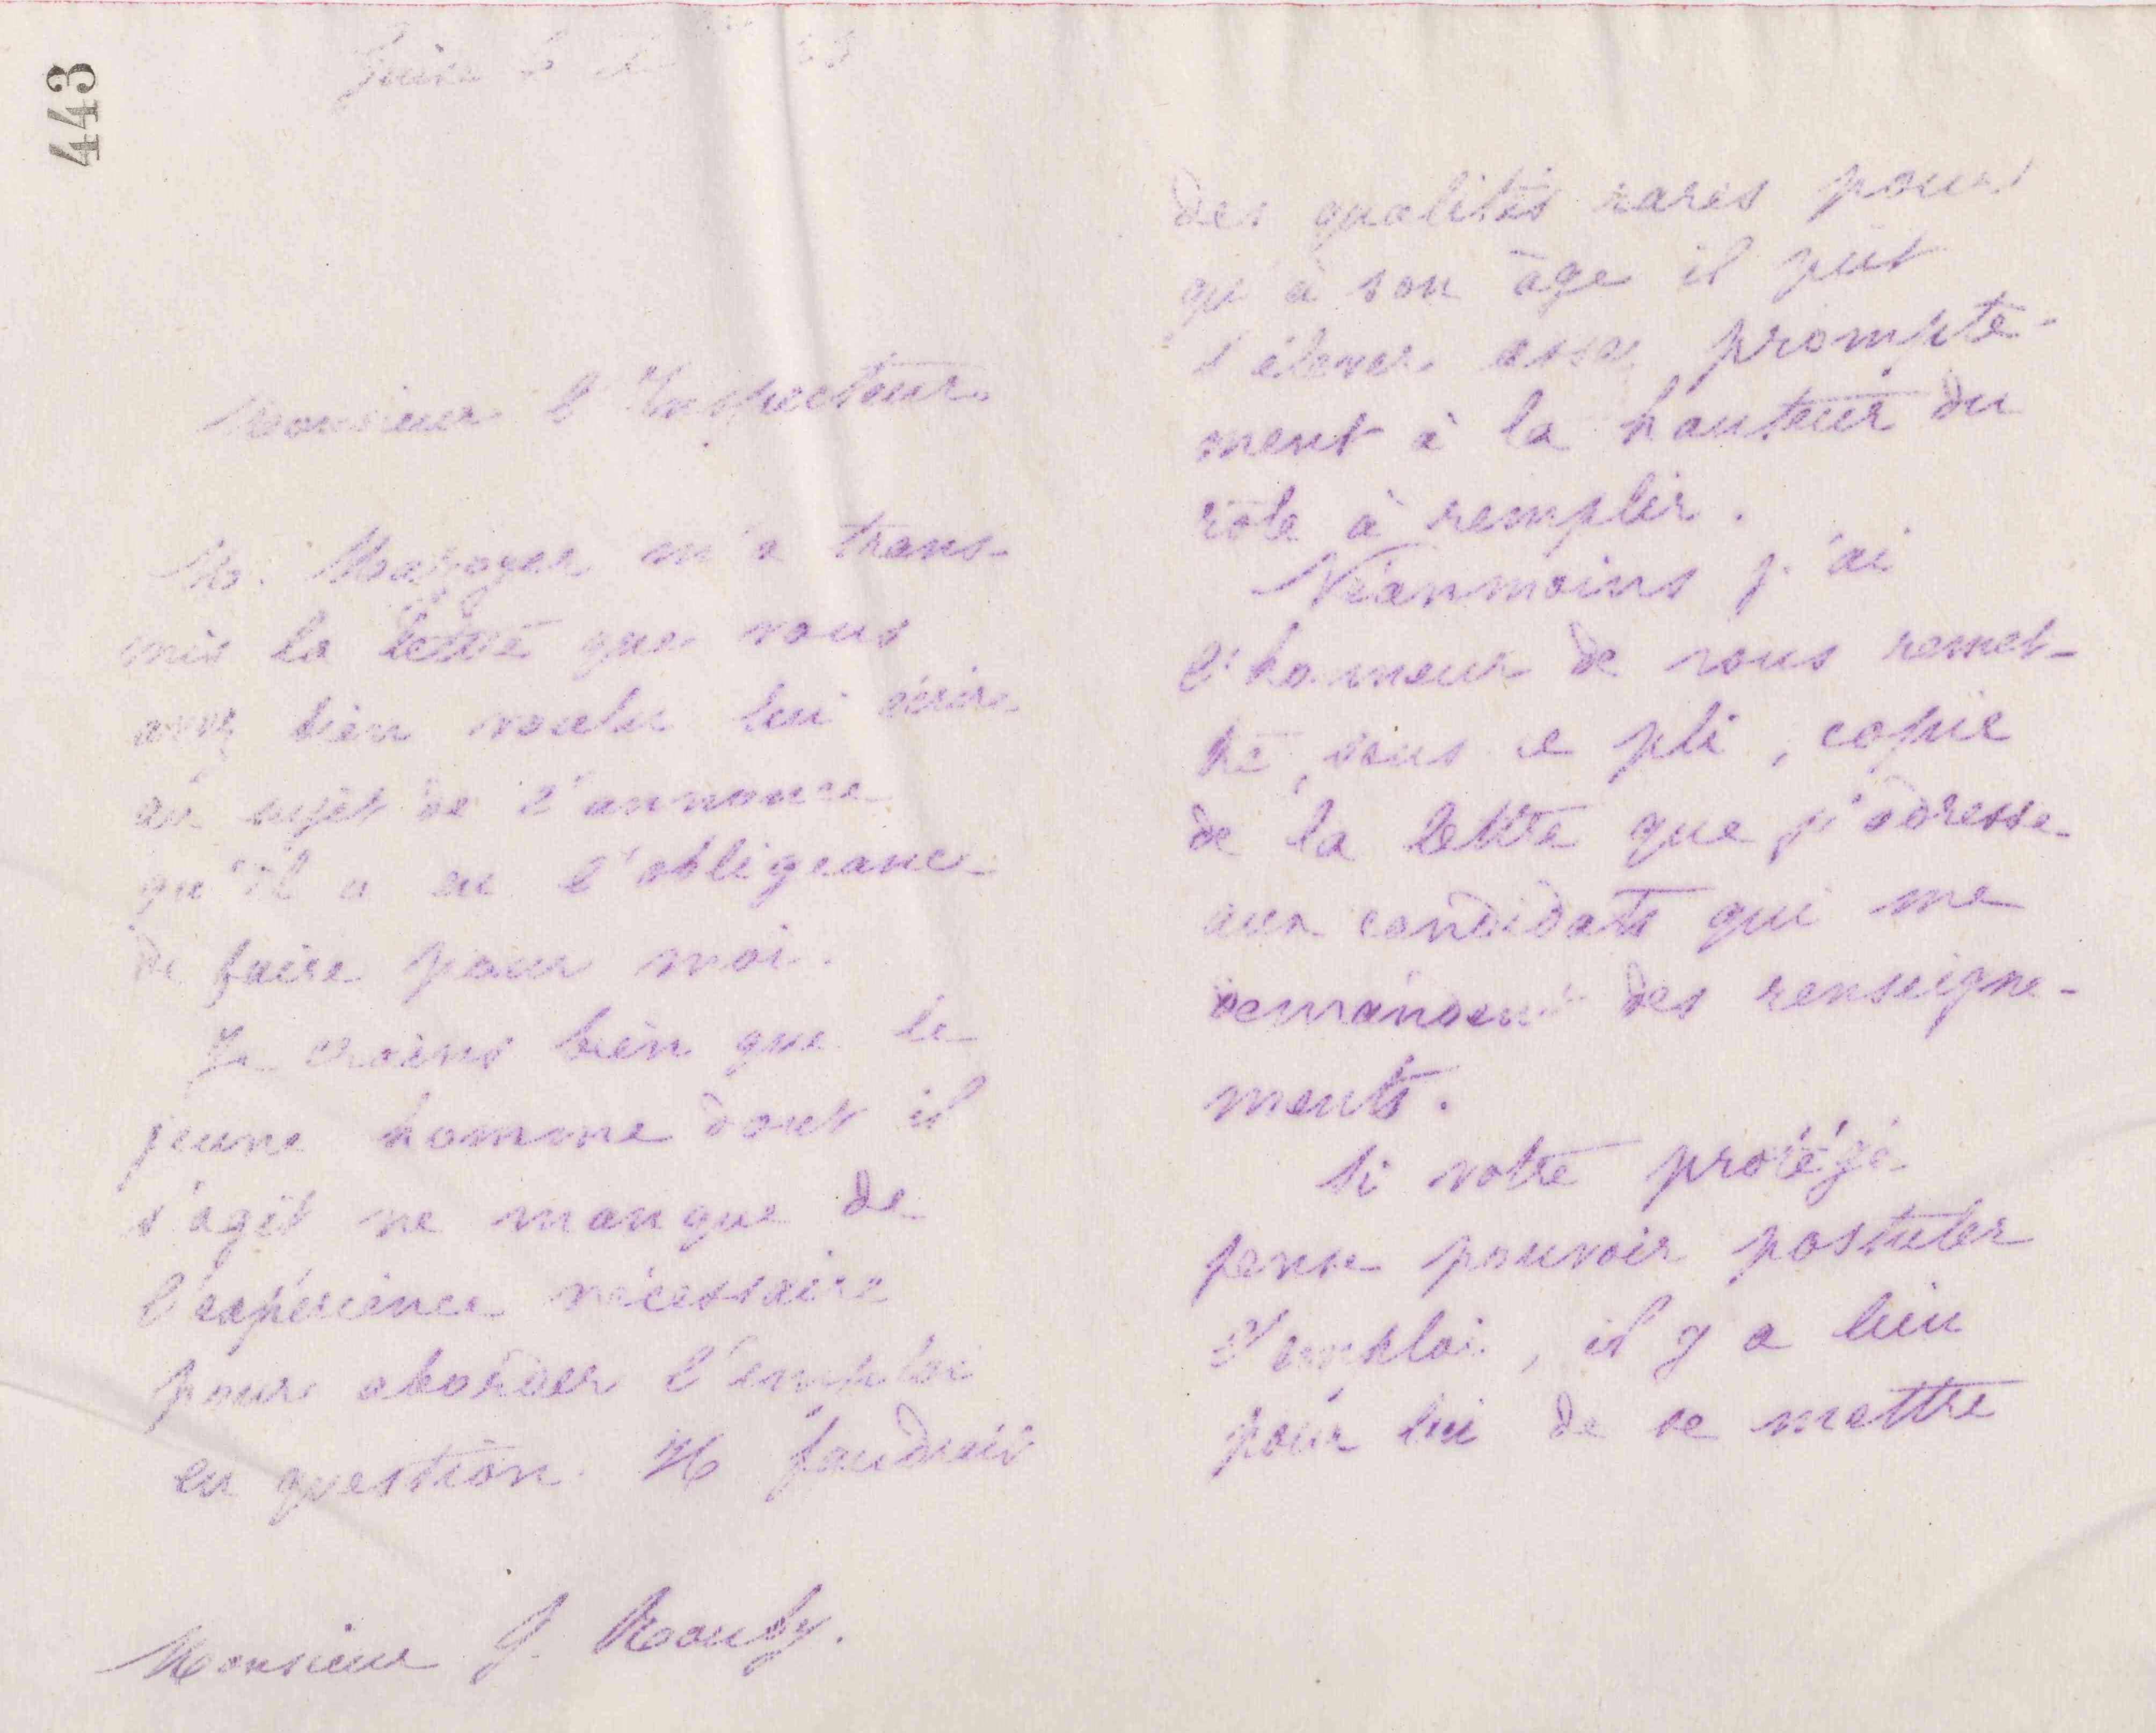 443
Monsieur l'Inspecteur
M. m'a trans-
mis la lettre que vous
avez bien voulu lui écrire
au sujet de l'annonce
qu'il a eu l'obligeance
de faire pour moi.
Je crains bien que le
jeune homme dont il
s'agit ne manque de
l'expérience nécessaire
pour aborder l'emploi
en question. Il faudrait
Monsieur J.
des qualités rares pour
qu'à son âge il pût
s'élever assez prompte-
ment à la hauteur du
rôle à remplir.
Néanmoins j'ai
l'honneur de vous remet-
tre, sous ce pli, copie
de la lettre que j'adresse
aux candidats qui me
demandent des renseigne-
ments.
Si votre protégé
pense pouvoir postuler
l'emploi, il y a lieu
pour lui de se mettre